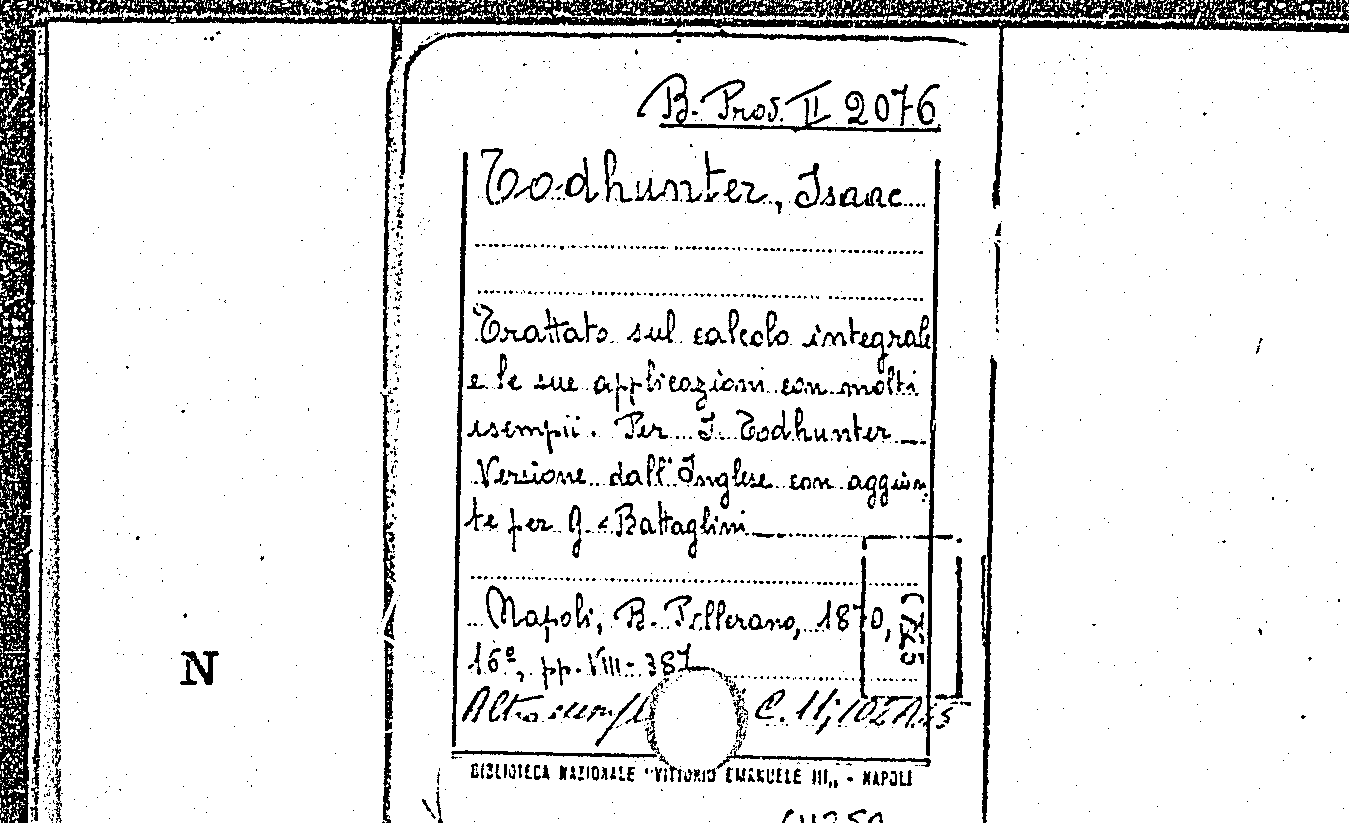 B. Prov. II 2076
Todhunter, Isaac
Trattato sul calcolo integrale
e le sue applicazioni con molti
esempii. Per I. Todhunter
Versione dall'Inglese con aggiun
te per G. Battaglini
Napoli, B. Pellerano, 1870,
16º, pp. VIII-387
N
BIBLIOTECA NAZIONALE "VITTORIO EMANUELE III„ - NAPOLI